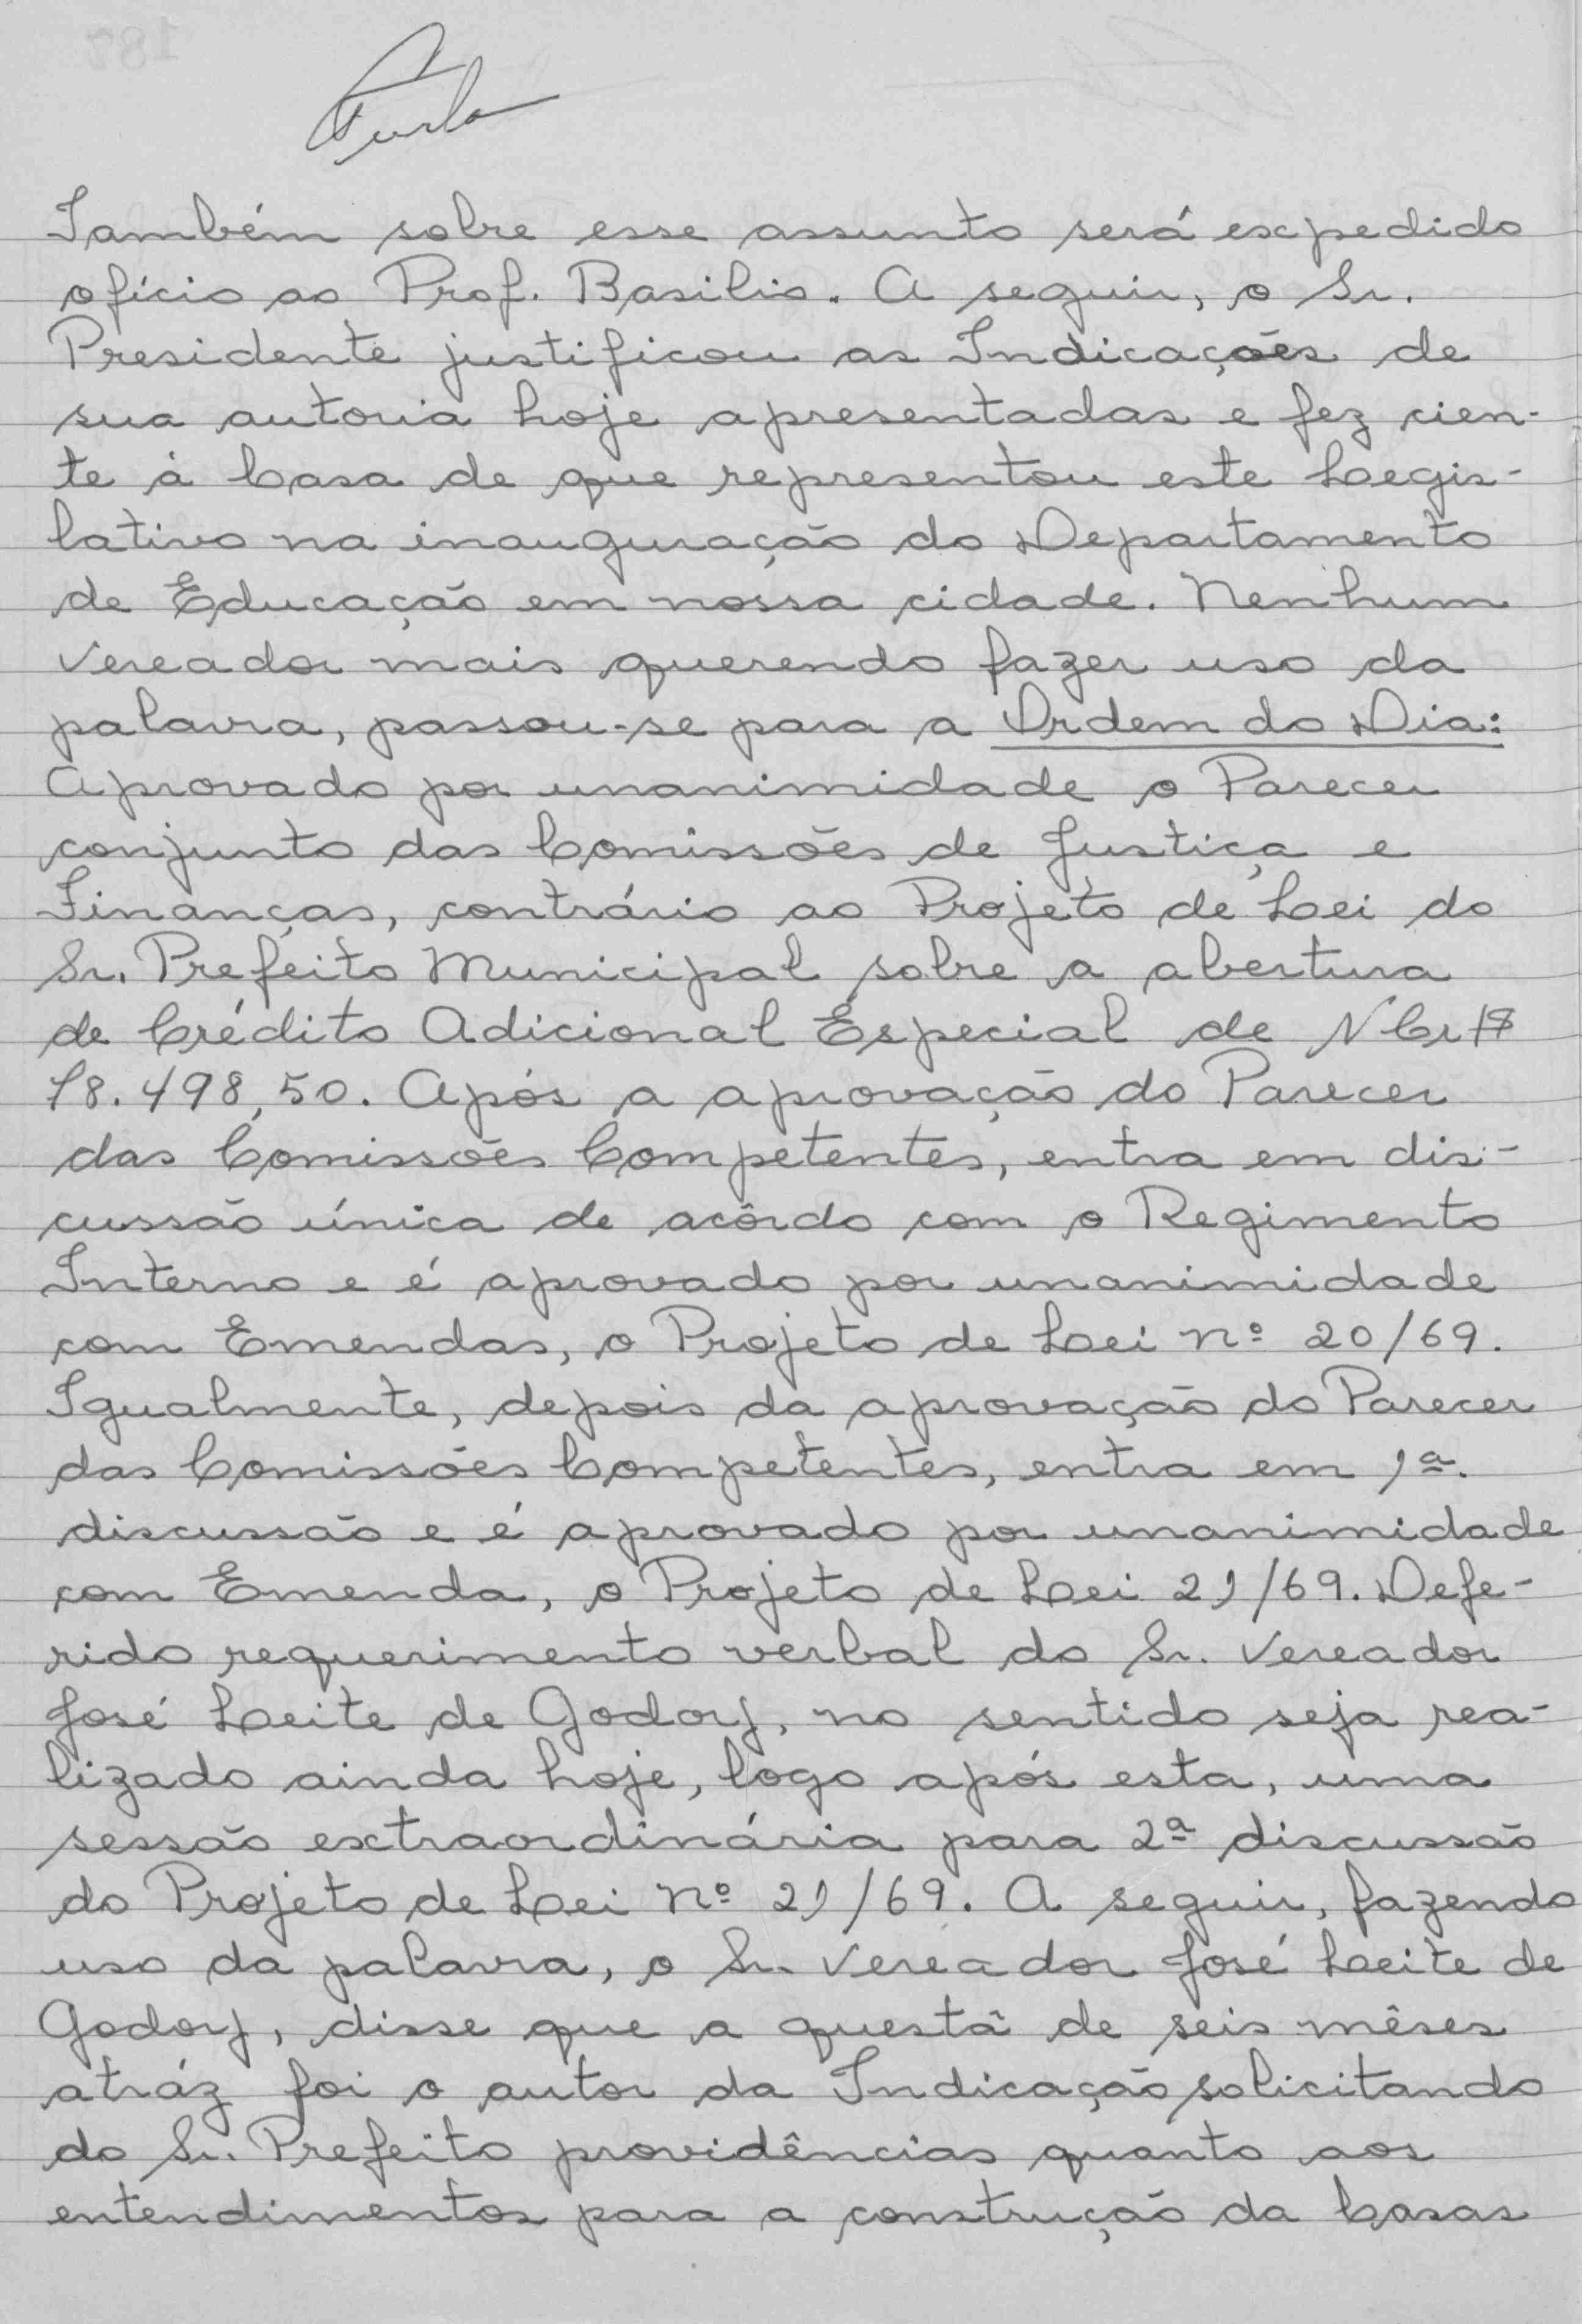 Também sobre esse assunto será expedido
ofício ao Prof. Basilio. A seguir, o Sr.
Presidente justificou as Indicações de
sua autoria hoje apresentadas e fez cien-
te à Casa de que representou este Legis-
lativo na inauguração do Departamento
de Educação em nossa cidade. Nenhum
vereador mais querendo fazer uso da
palavra, passou-se para a Ordem do Dia:
Aprovado por unanimidade o Parecer
conjunto das Comissões de Justiça e
Finanças, contrário ao Projeto de Lei do
Sr. Prefeito Municipal sobre a abertura
de Crédito Adicional Especial de NCr$
18.498,50. Após a aprovação do Parecer
das Comissões Competentes, entra em dis-
cussão única de acôrdo com o Regimento
Interno e é aprovado por unanimidade
com Emendas, o Projeto de Lei nº 20/69.
Igualmente, depois da aprovação do Parecer
das Comissões Competentes, entra em 1ª.
discussão e é aprovado por unanimidade
com Emenda, o Projeto de Lei 21/69. Defe-
rido requerimento verbal do Sr. Vereador
José Leite de Godoy, no sentido seja rea-
lizado ainda hoje, logo após esta, uma
sessão extraordinária para 2ª discussão
do Projeto de Lei nº 21/69. A seguir, fazendo
uso da palavra, o Sr. Vereador José Leite de
Godoy, disse que a questã de seis mêses
atráz foi o autor da Indicação solicitando
do Sr. Prefeito providências quanto aos
entendimentos para a construção da Casas